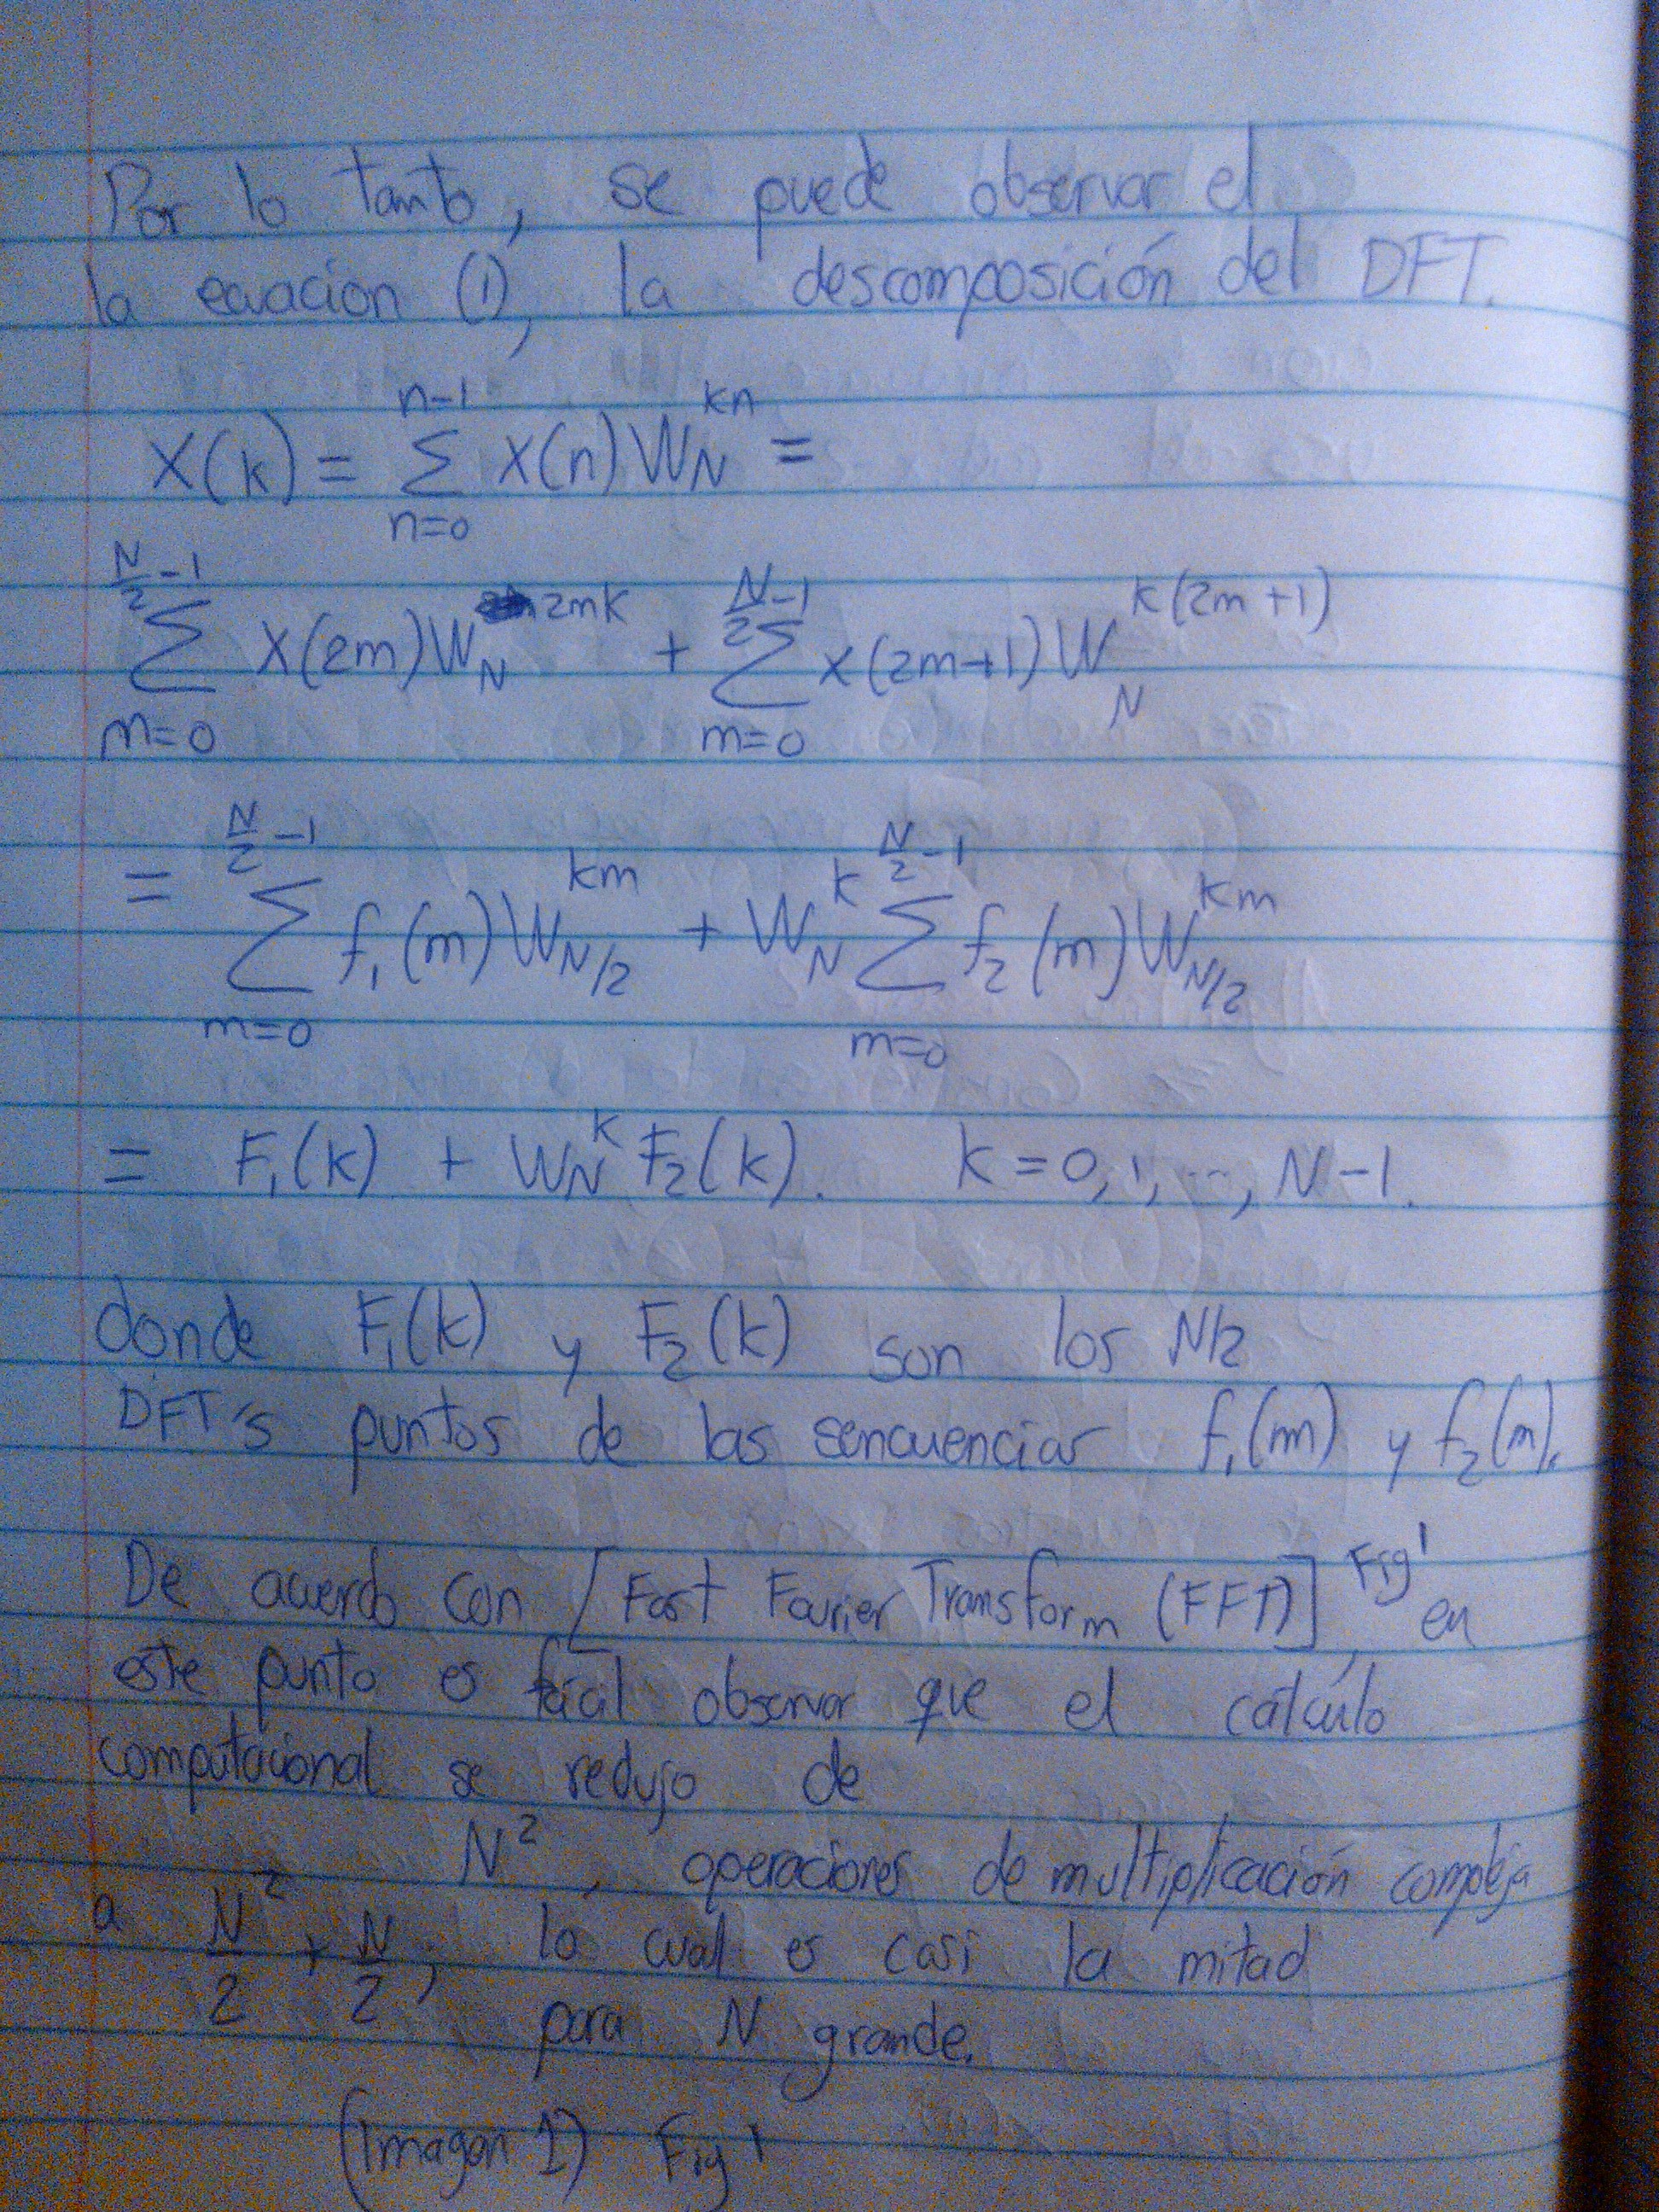 Por lo tanto, se puede observar el
la ecuacion (1), la descomposición del DFT.
X(k) = Σ_{n=0}^{n-1} X(n) W_N^{kn} =
Σ_{m=0}^{N/2 -1} X(2m) W_N^{2mk} + Σ_{m=0}^{N/2 -1} x(2m+1) W_N^{k(2m+1)}
= Σ_{m=0}^{N/2 -1} f₁(m) W_{N/2}^{km} + W_N^k Σ_{m=0}^{N/2 -1} f₂(m) W_{N/2}^{km}
= F₁(k) + W_N^k F₂(k). k=0,1,...,N-1.
donde F₁(k) y F₂(k) son los N/2
DFT's puntos de las sencuenciar f₁(m) y f₂(m).
De acuerdo con [Fast Fourier Transform (FFT)]^{Fig 1}, en
este punto es fácil observar que el cálculo
computacional se redujo de
N², operaciones de multiplicación compleja
a N²/2 + N/2, lo cual es casi la mitad
para N grande.
(Imagen 1) Fig 1